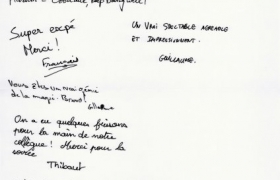 Super expé
Merci!
François
Un vrai spectacle agréable
et impressionnant.
Guillaume.
Vous êtes un vrai génie
de la magie. Bravo!
On a eu quelques frissons
pour la main de notre
collègue! Merci pour la
soirée
Thibaut